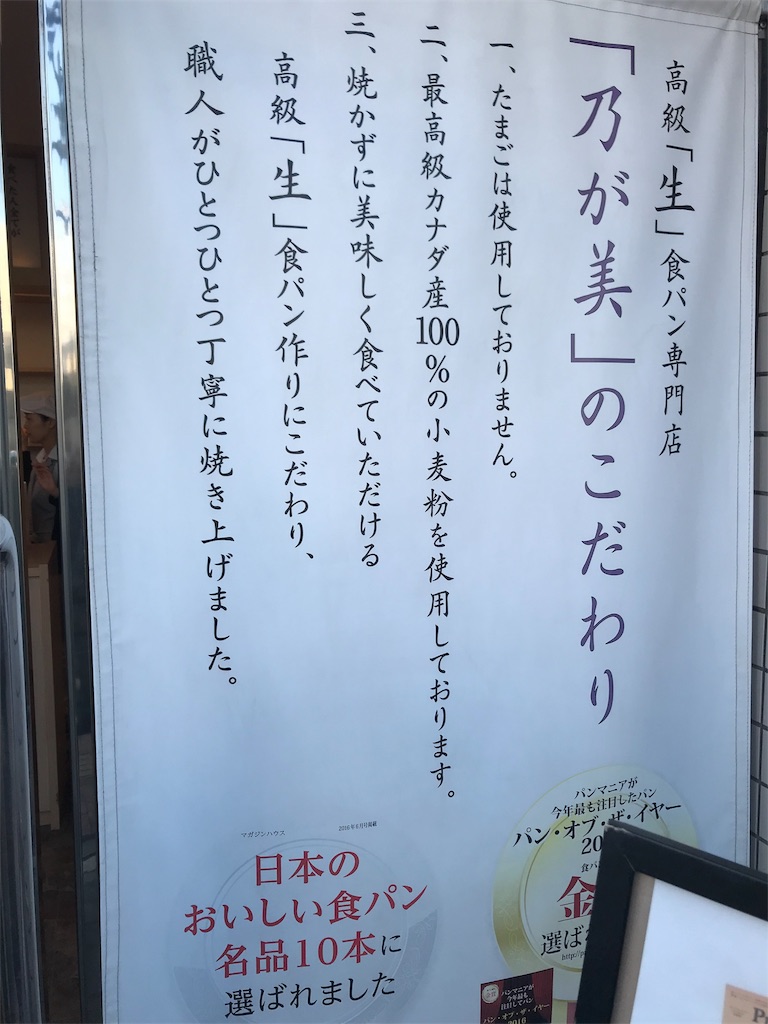 高級「生」食パン専門店
「乃が美」のこだわり
一、たまごは使用しておりません。
二、最高級カナダ産100％の小麦粉を使用しております。
三、焼かずに美味しく食べていただける
高級「生」食パン作りにこだわり、
職人がひとつひとつ丁寧に焼き上げました。
パンマニアが
今年最も注目したパン
パン・オブ・ザ・イヤー
20
食パ
金
選ば
マガジンハウス
日本の
おいしい食パン
名品10本に
選ばれました
パンマニアが
今年最も
注目したパン
パン・オブ・ザ・イヤー
2016